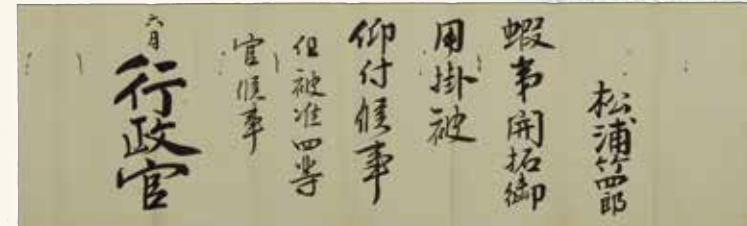 松浦竹四郎
蝦夷開拓御
用掛被
仰付候事
但被准四等
官候事
六月
行政官